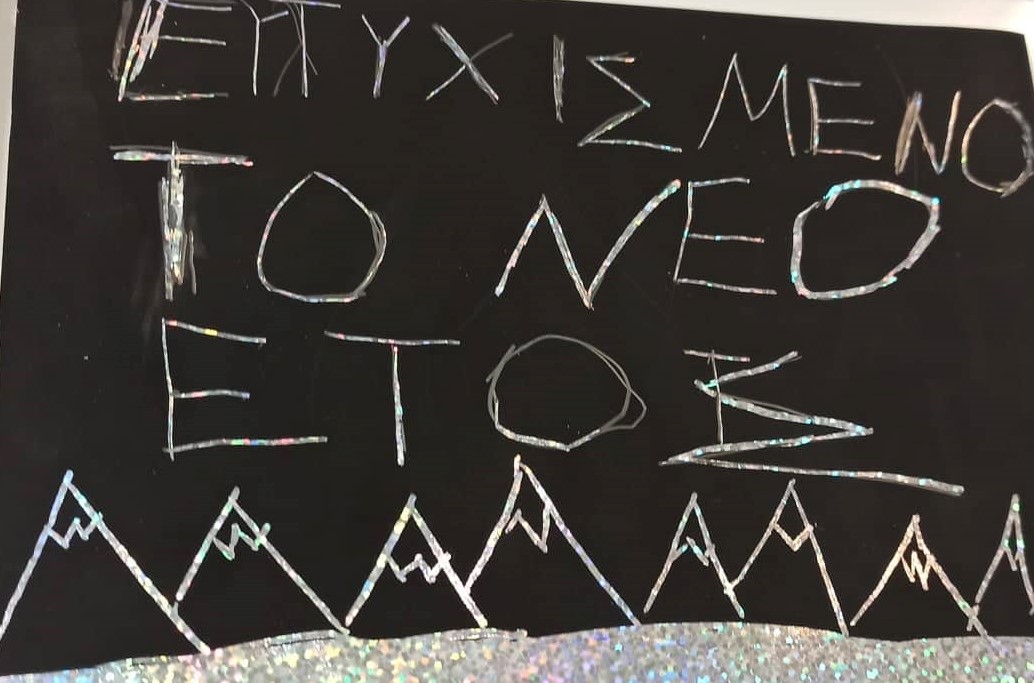 ΕΤΤΥΧΙΣΜΕΝΟ
ΤΟ ΝΕΟ
ΕΤΟΣ